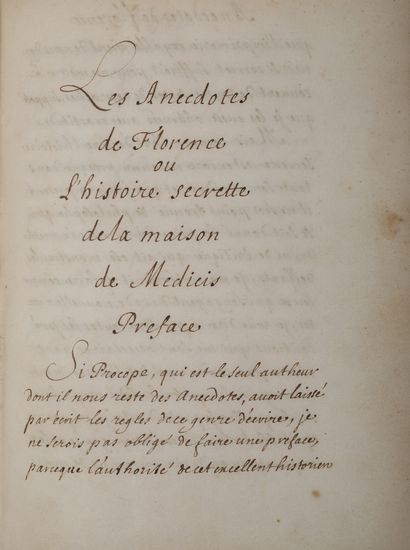 Les Anecdotes
de Florence
ou
L'histoire secrette
dela maison
de Medicis
Preface
Si Procope, qui est le seul autheur
dont il nous reste des Anecdotes, avoit laissé
par écrit les regles dece genre d'écrire, je
ne serois pas obligé de faire une préface,
parceque l'authorité de cet excellent historien